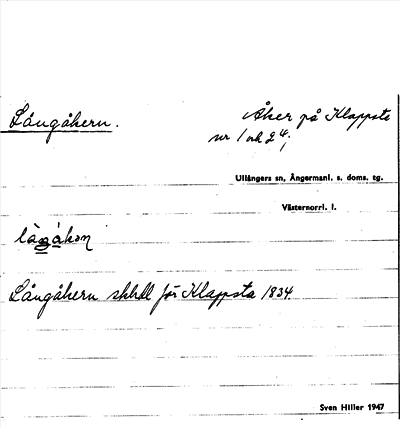 Långåkern.
Åker på Klappsta
nr 1 och 2 4;
Ullångers sn, Ångermanl. s. doms. tg.
Västernorrl. l.
Långåkern skhdl för Klappsta 1834.
Sven Hiller 1947